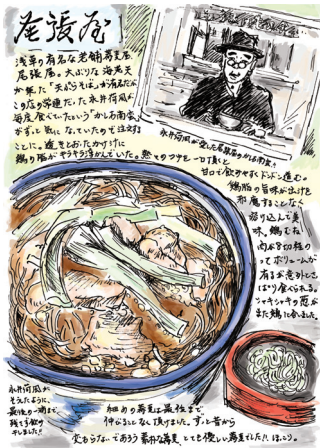 尾張屋
浅草の有名な老舗蕎麦屋
尾張屋。大ぶりな海老天
が乗った「天ぷらそば」が有名だが
この店の常連だった永井荷風が
毎度食べていたという「かしわ南蛮」
がずっと気になっていたので注文する
ことに。透きとおったかけ汁に
鶏の脂がキラキラ浮かんでいた。熱々のつゆを一口頂くと
永井荷風が愛した尾張屋のかしわ南蛮
甘口で飲みやすくドンドン進む。
鶏脂の旨味が出汁を
邪魔することなく
溶け込んで美
味。鶏もも
肉が8切程の
ってボリュームが
有るが意外とさっ
ぱり食べられる。
シャキシャキの葱が
また鶏に合いました。
永井荷風が
そうしたように、
最後の一滴まで
残さず飲み
干しました!!
細めの蕎麦は最後まで
伸びることなく頂けました。ずっと昔から
変わらないであろう素朴な蕎麦、とても優しい蕎麦でした!!ほっこり。